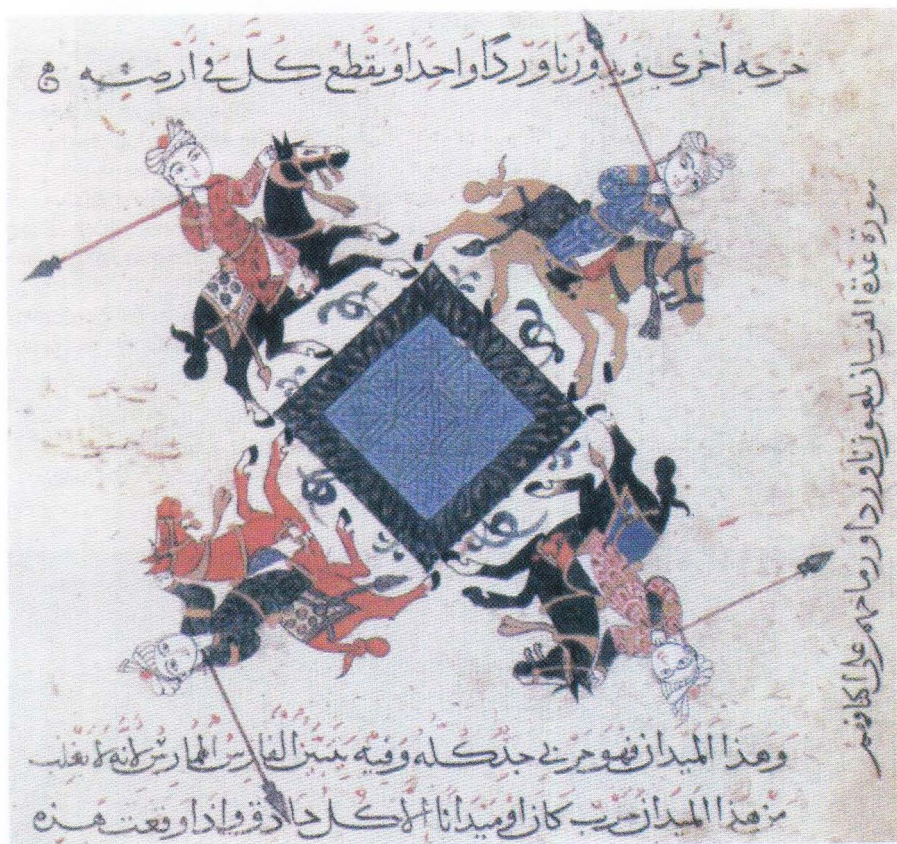 خرجه اخرى ويدورنا وردًا واحدا ويقطع كل في ارضه
صورة عدة الفرسان يلعبوا ناورد اورماحهم على اكتافهم
وهذا الميدان فهو حربي جد كله وفيه يتبين الفارس الممارس لانه لا يغلب
من هذا الميدان حرب كان او ميدانا الا كل حاذق واذا وقعت هذه